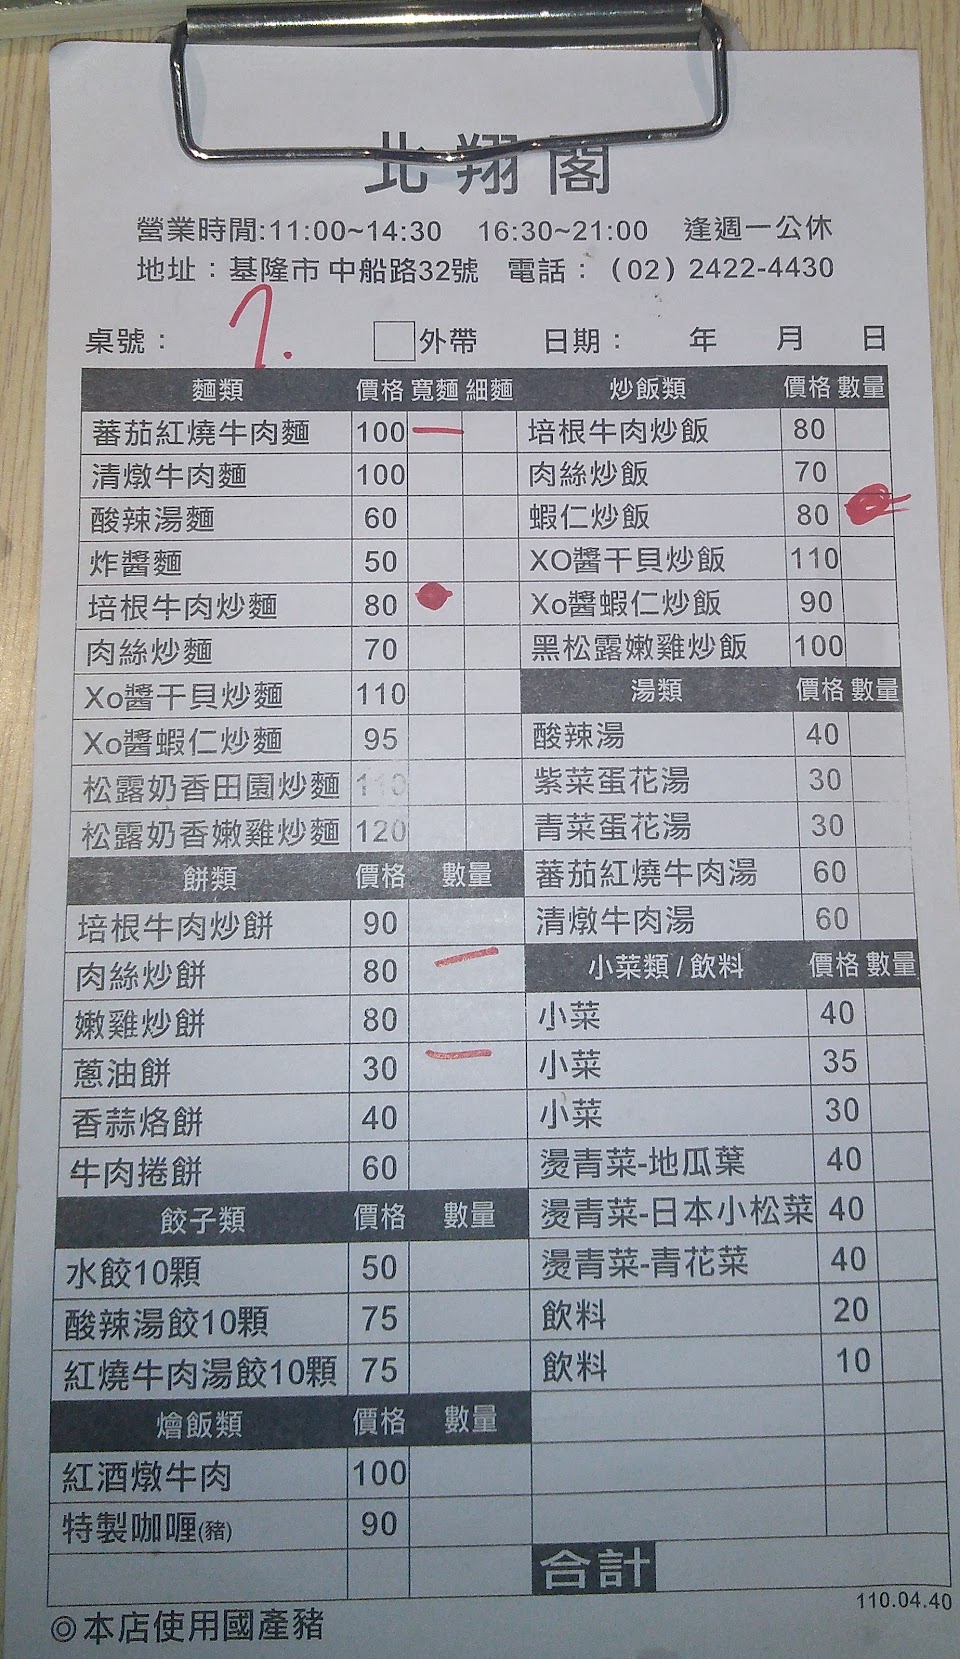 北翔閣
營業時間:11:00~14:30 16:30~21:00 逢週一公休
地址：基隆市 中船路32號 電話：（02）2422-4430
桌號： 7. 外帶 日期： 年 月 日
麵類 價格 寬麵 細麵
蕃茄紅燒牛肉麵 100 一
清燉牛肉麵 100
酸辣湯麵 60
炸醬麵 50
培根牛肉炒麵 80
肉絲炒麵 70
Xo醬干貝炒麵 110
Xo醬蝦仁炒麵 95
松露奶香田園炒麵 110
松露奶香嫩雞炒麵 120
餅類 價格 數量
培根牛肉炒餅 90
肉絲炒餅 80 一
嫩雞炒餅 80
蔥油餅 30 一
香蒜烙餅 40
牛肉捲餅 60
餃子類 價格 數量
水餃10顆 50
酸辣湯餃10顆 75
紅燒牛肉湯餃10顆 75
燴飯類 價格 數量
紅酒燉牛肉 100
特製咖喱(豬) 90
炒飯類 價格 數量
培根牛肉炒飯 80
肉絲炒飯 70
蝦仁炒飯 80
XO醬干貝炒飯 110
Xo醬蝦仁炒飯 90
黑松露嫩雞炒飯 100
湯類 價格 數量
酸辣湯 40
紫菜蛋花湯 30
青菜蛋花湯 30
蕃茄紅燒牛肉湯 60
清燉牛肉湯 60
小菜類/飲料 價格 數量
小菜 40
小菜 35
小菜 30
燙青菜-地瓜葉 40
燙青菜-日本小松菜 40
燙青菜-青花菜 40
飲料 20
飲料 10
合計
110.04.40
◎本店使用國產豬